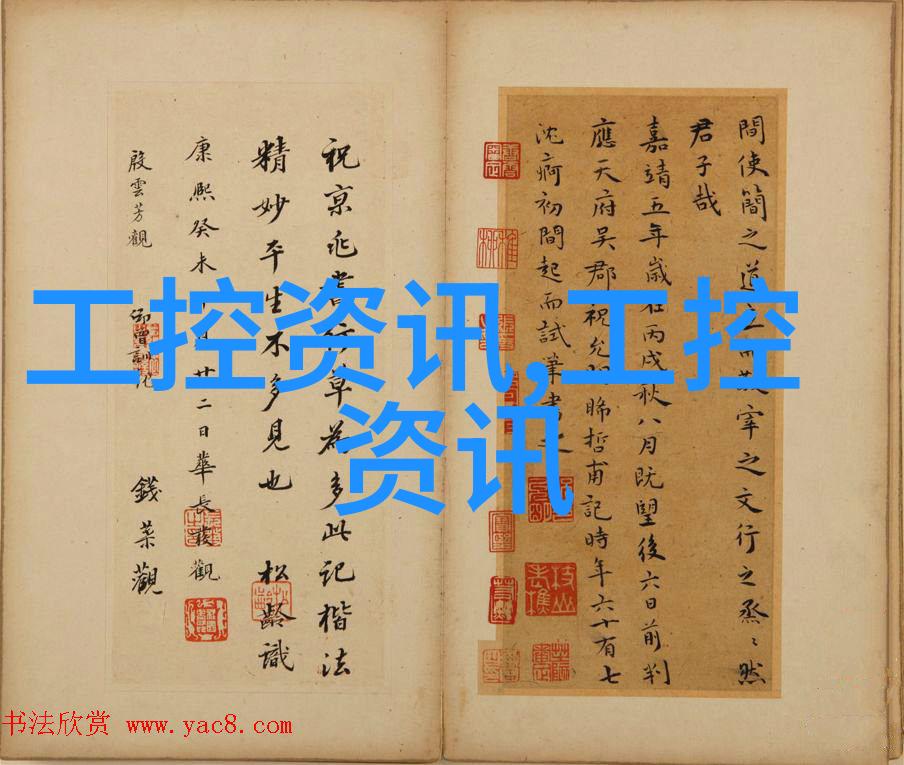 間使簡之道
宰之文行之烝烝然
君子哉
嘉靖五年歲在丙戌秋八月既望後六日前判
應天府吳郡祝允明晞哲甫記時年六十有七
沈痾初間起而試筆書
祝京兆書
草為多此記楷法
精妙平生不多見也 松齡識
康熙癸未
廿二日華長發觀
殷雲芳觀
錢菜觀
工控资讯,工控
资讯
书法欣赏 www.yac8.com